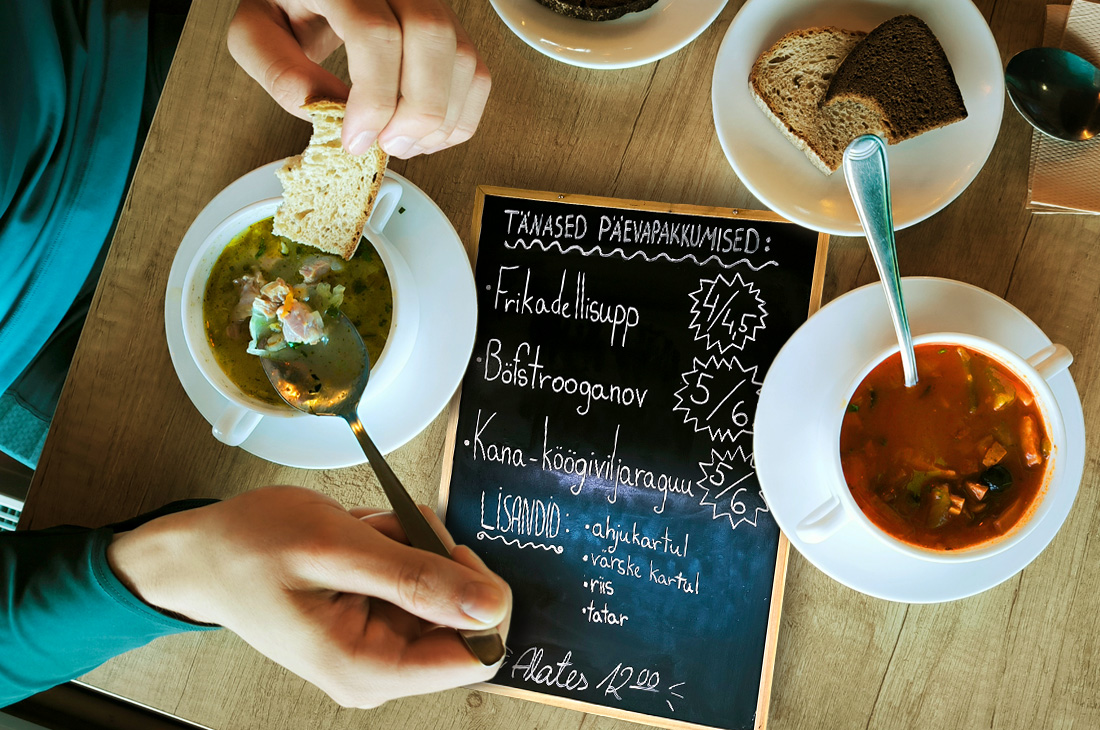 TÄNASED PÄEVAPAKKUMISED:
• Frikadellisupp 4/4,5
• Böfstrooganov 5/6
• Kana-köögiviljaraguu 5/6
LISANDID: • ahjukartul
• värske kartul
• riis
• tatar
Alates 12 00